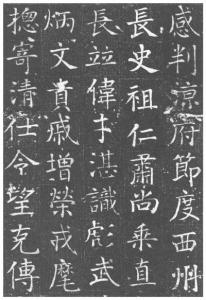 感判涼府節度西州
長史祖仁肅尚乘直
長並偉才湛識彪武
炳文貴戚增榮戎麾
摠寄清仕令望克傳